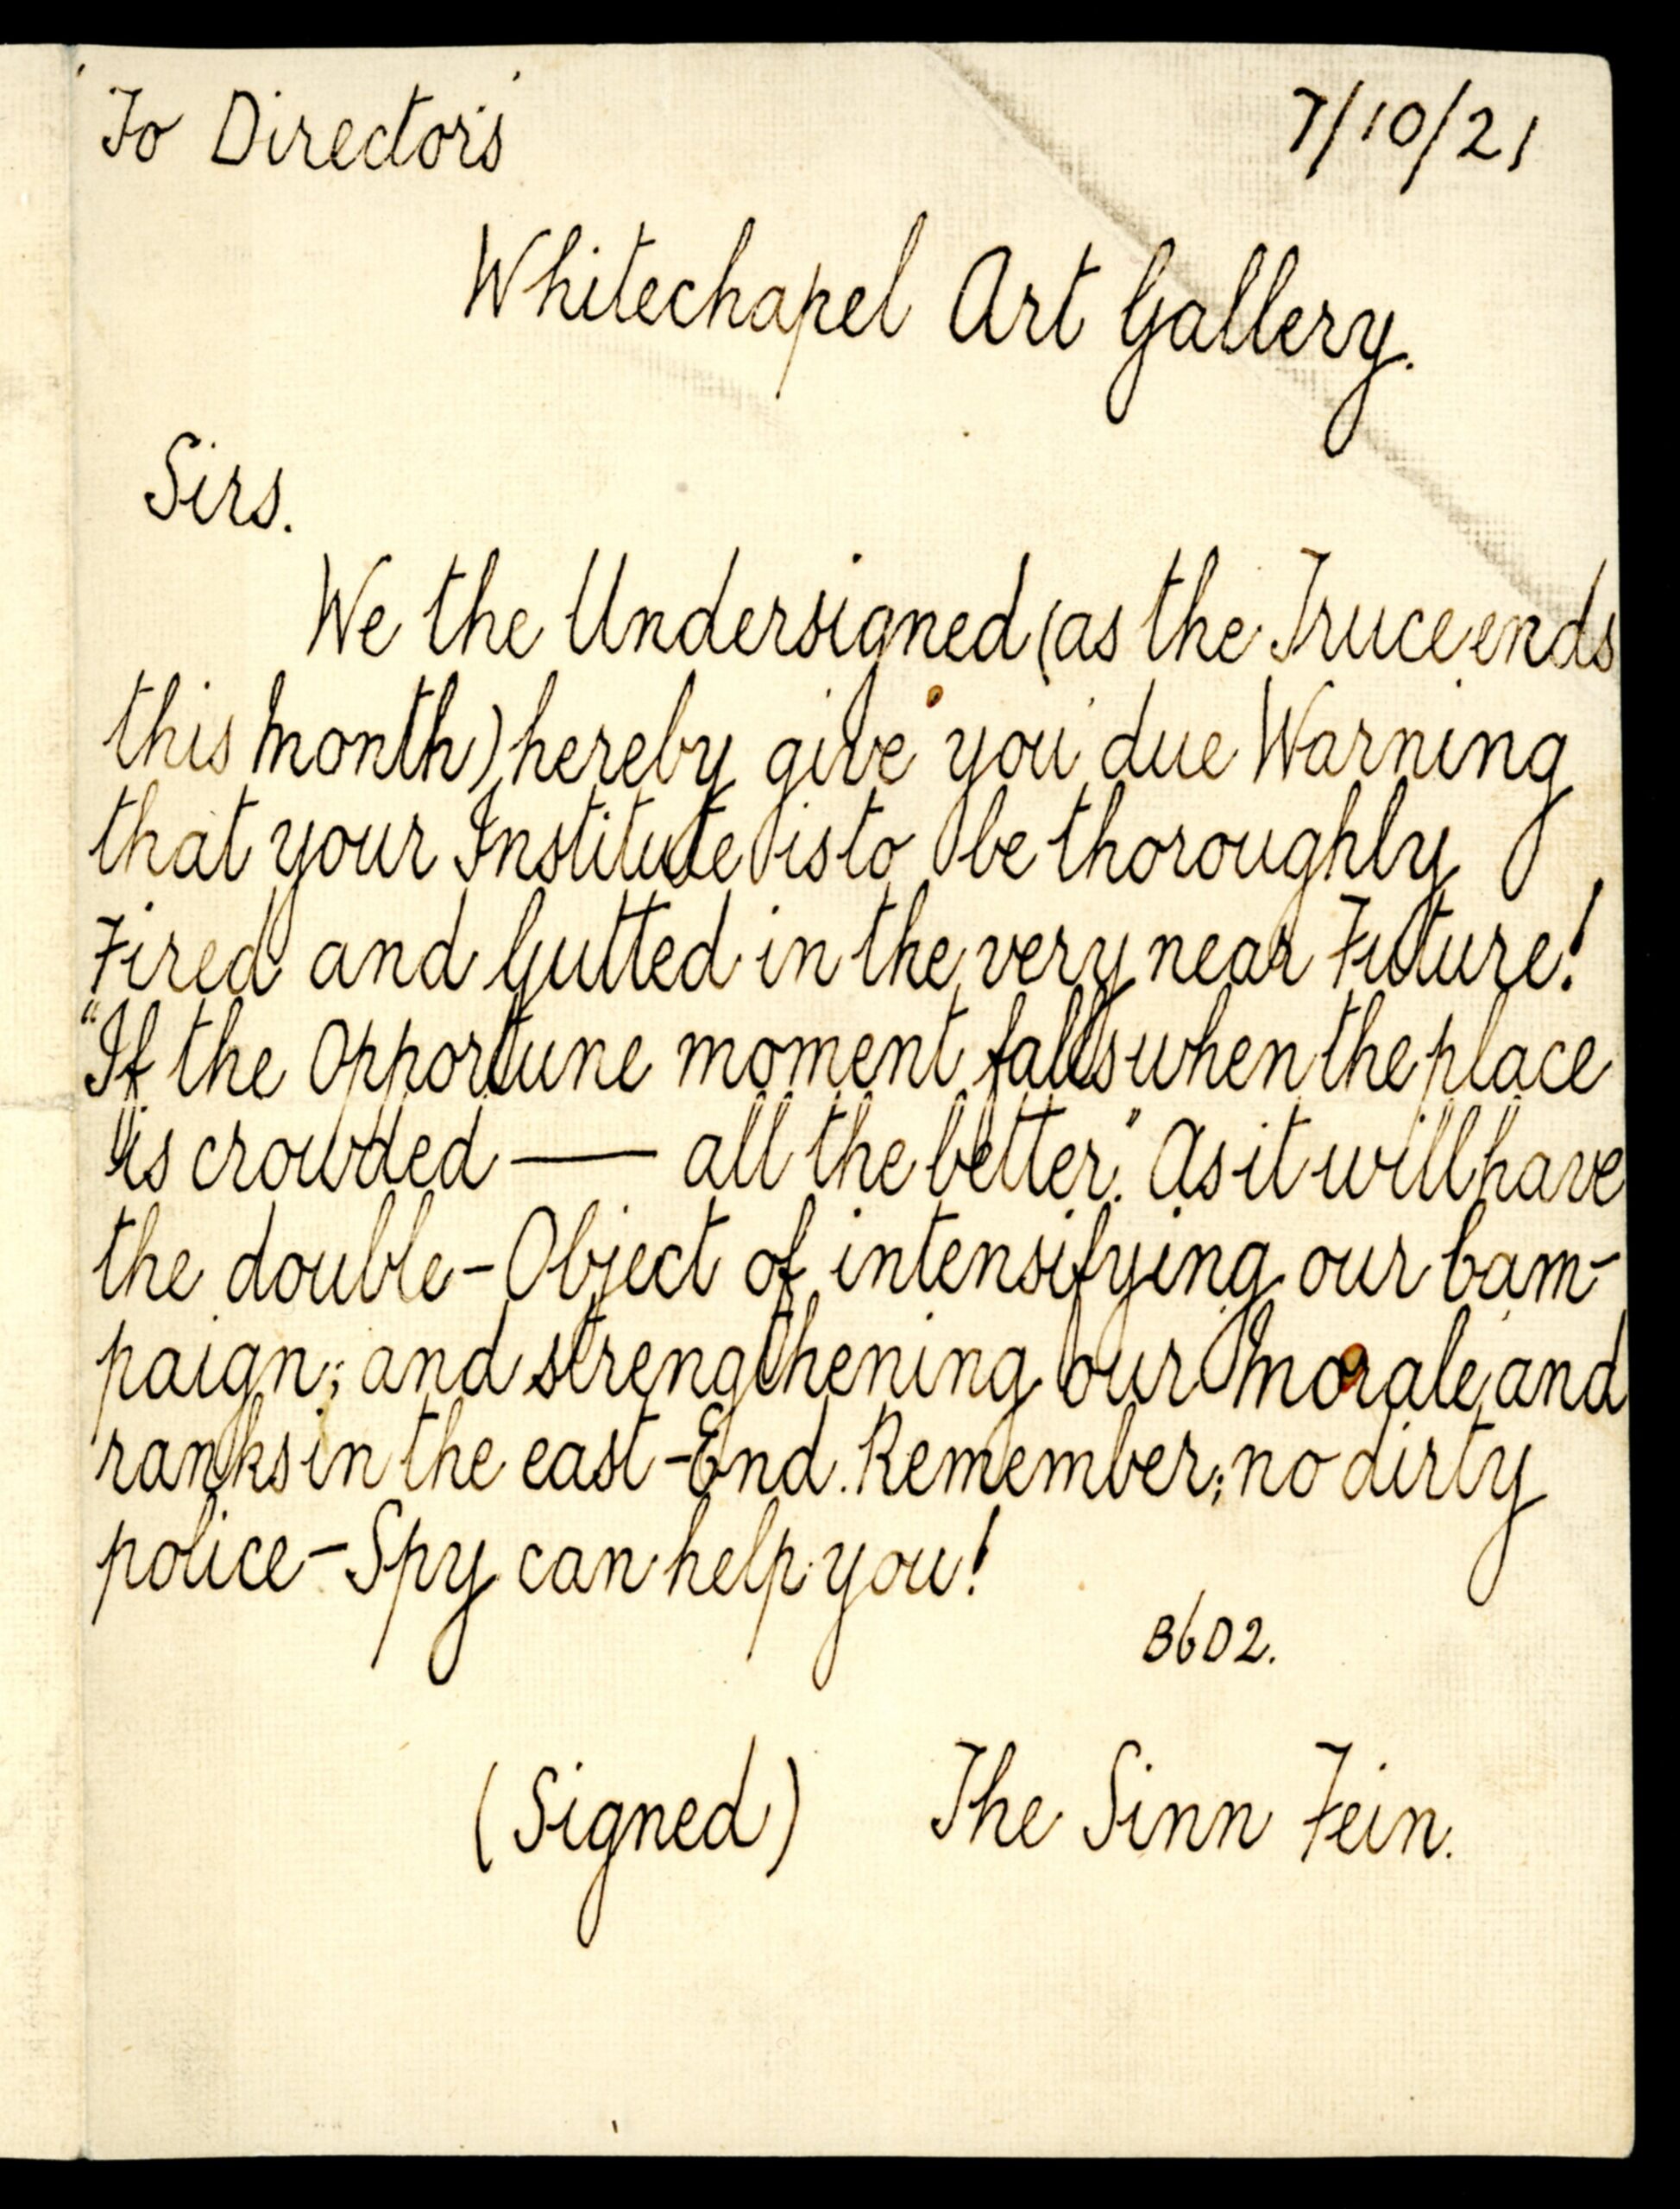 To Directors 7/10/21
Whitechapel Art Gallery.
Sirs.
We the Undersigned (as the Truce ends
this Month) hereby give you due Warning
that your Institute is to be thoroughly
Fired and Gutted in the very near Future!
"If the Opportune moment falls when the place
"is crowded — all the better." As it will have
the double-Object of intensifying our Cam-
paign; and strengthening our Morale and
ranks in the east-End. Remember; no dirty
police-Spy can help you!
B6D2.
(Signed) The Sinn Fein.